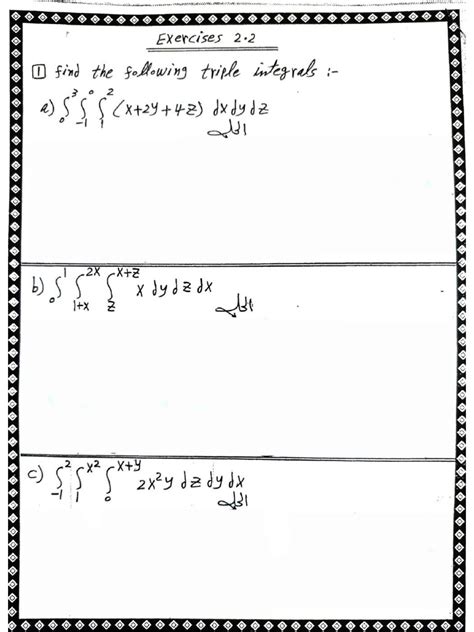 Exercises 2.2
1 find the following triple integrals :-
a) ∫₀³ ∫₋₁⁰ ∫₁² (x+2y+4z) dx dy dz
الحل
b) ∫₀¹ ∫₁₊ₓ²ˣ ∫_z^(x+z) x dy dz dx
الحل
c) ∫₋₁² ∫₁^(x²) ∫₀^(x+y) 2x²y dz dy dx
الحل